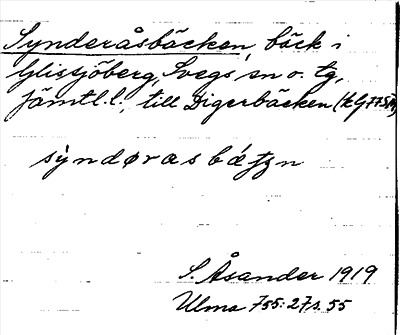 Synderåsbäcken, bäck i
Glissjöberg, Svegs sn o. tg,
Jämtl.l., till Digerbäcken
syndørasbæʈʂn
S. Åsander 1919
Ulma 755: 27 s. 55